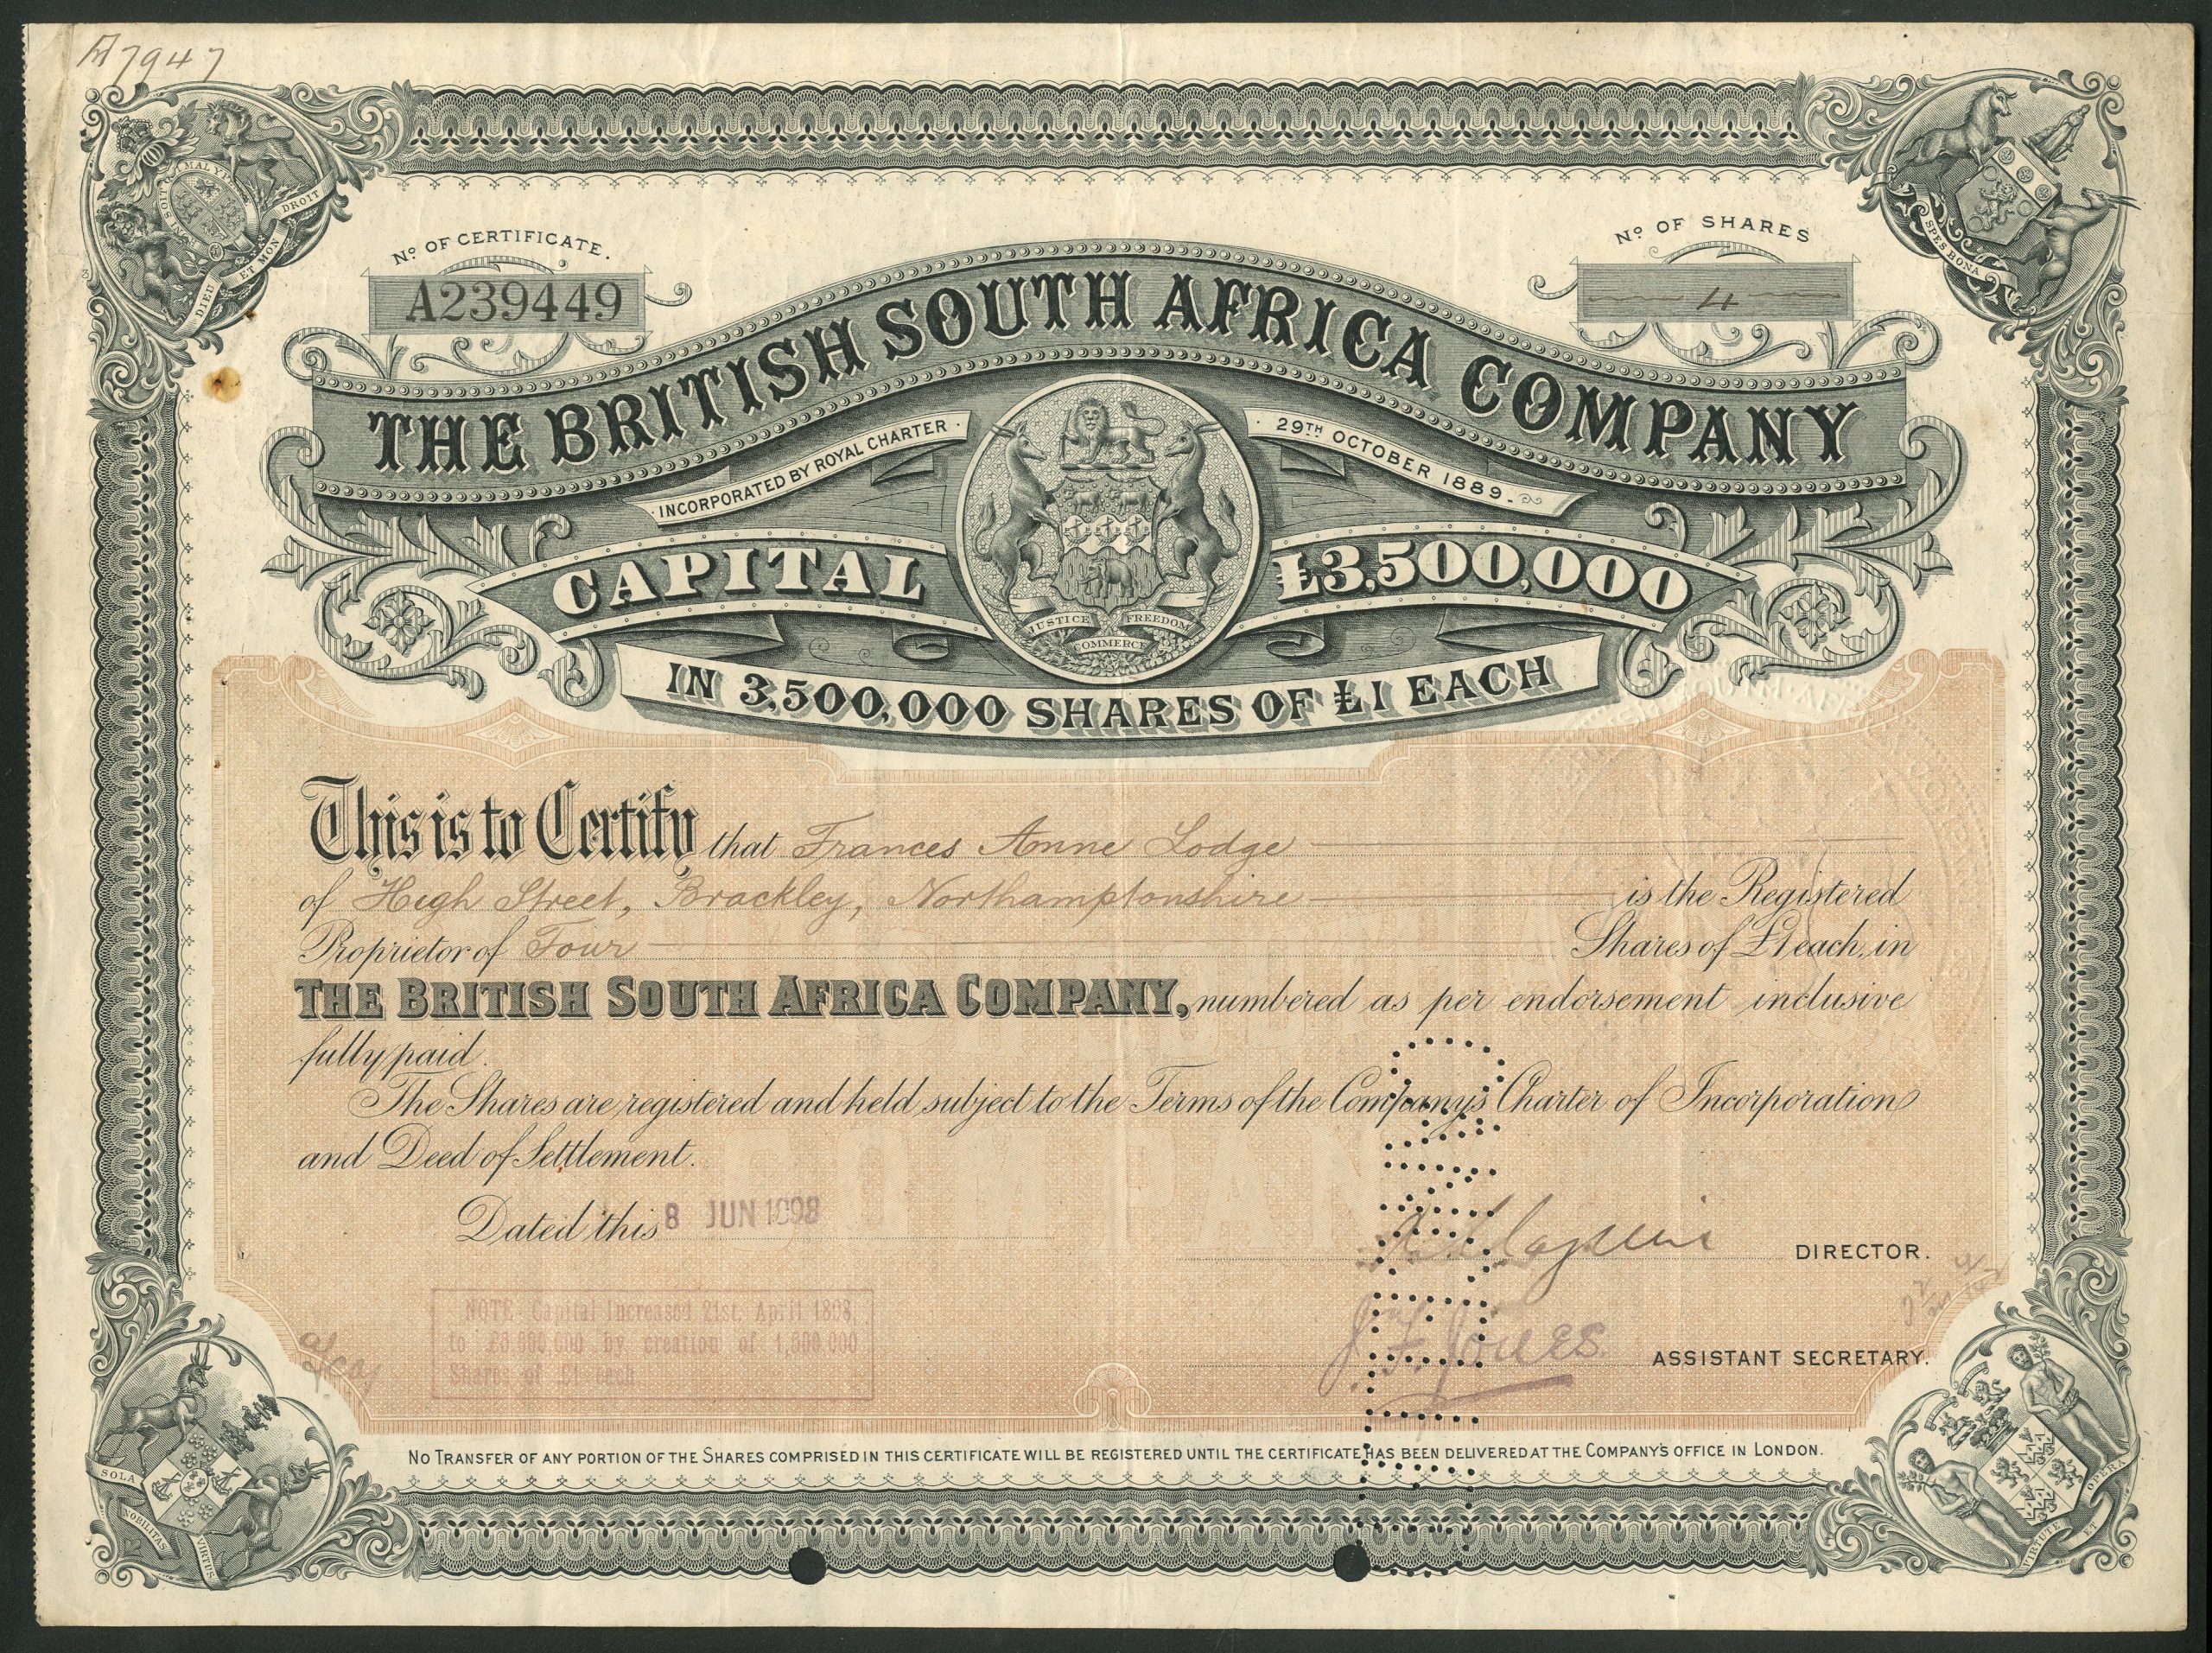 A7947
Nº OF CERTIFICATE.
A239449
Nº OF SHARES
4
THE BRITISH SOUTH AFRICA COMPANY
INCORPORATED BY ROYAL CHARTER
29TH OCTOBER 1889.
CAPITAL £3,500,000
JUSTICE FREEDOM
COMMERCE
IN 3,500,000 SHARES OF £1 EACH
This is to Certify that Frances Anne Lodge
of High Street, Brackley, Northamptonshire is the Registered
Proprietor of Four Shares of £1 each, in
THE BRITISH SOUTH AFRICA COMPANY, numbered as per endorsement inclusive
fully paid.
The Shares are registered and held subject to the Terms of the Company's Charter of Incorporation
and Deed of Settlement.
Dated this 8 JUN 1898
DIRECTOR.
NOTE- Capital Increased 21st. April 1898,
to by creation of
Shares of £1 each
J. F. Jones
ASSISTANT SECRETARY.
NO TRANSFER OF ANY PORTION OF THE SHARES COMPRISED IN THIS CERTIFICATE WILL BE REGISTERED UNTIL THE CERTIFICATE HAS BEEN DELIVERED AT THE COMPANY'S OFFICE IN LONDON.
CANCELLED
DIEU ET MON DROIT
HONI SOIT MAL Y
SPES BONA
SOLA NOBILITAS VIRTUS
VIRTUTE ET OPERA